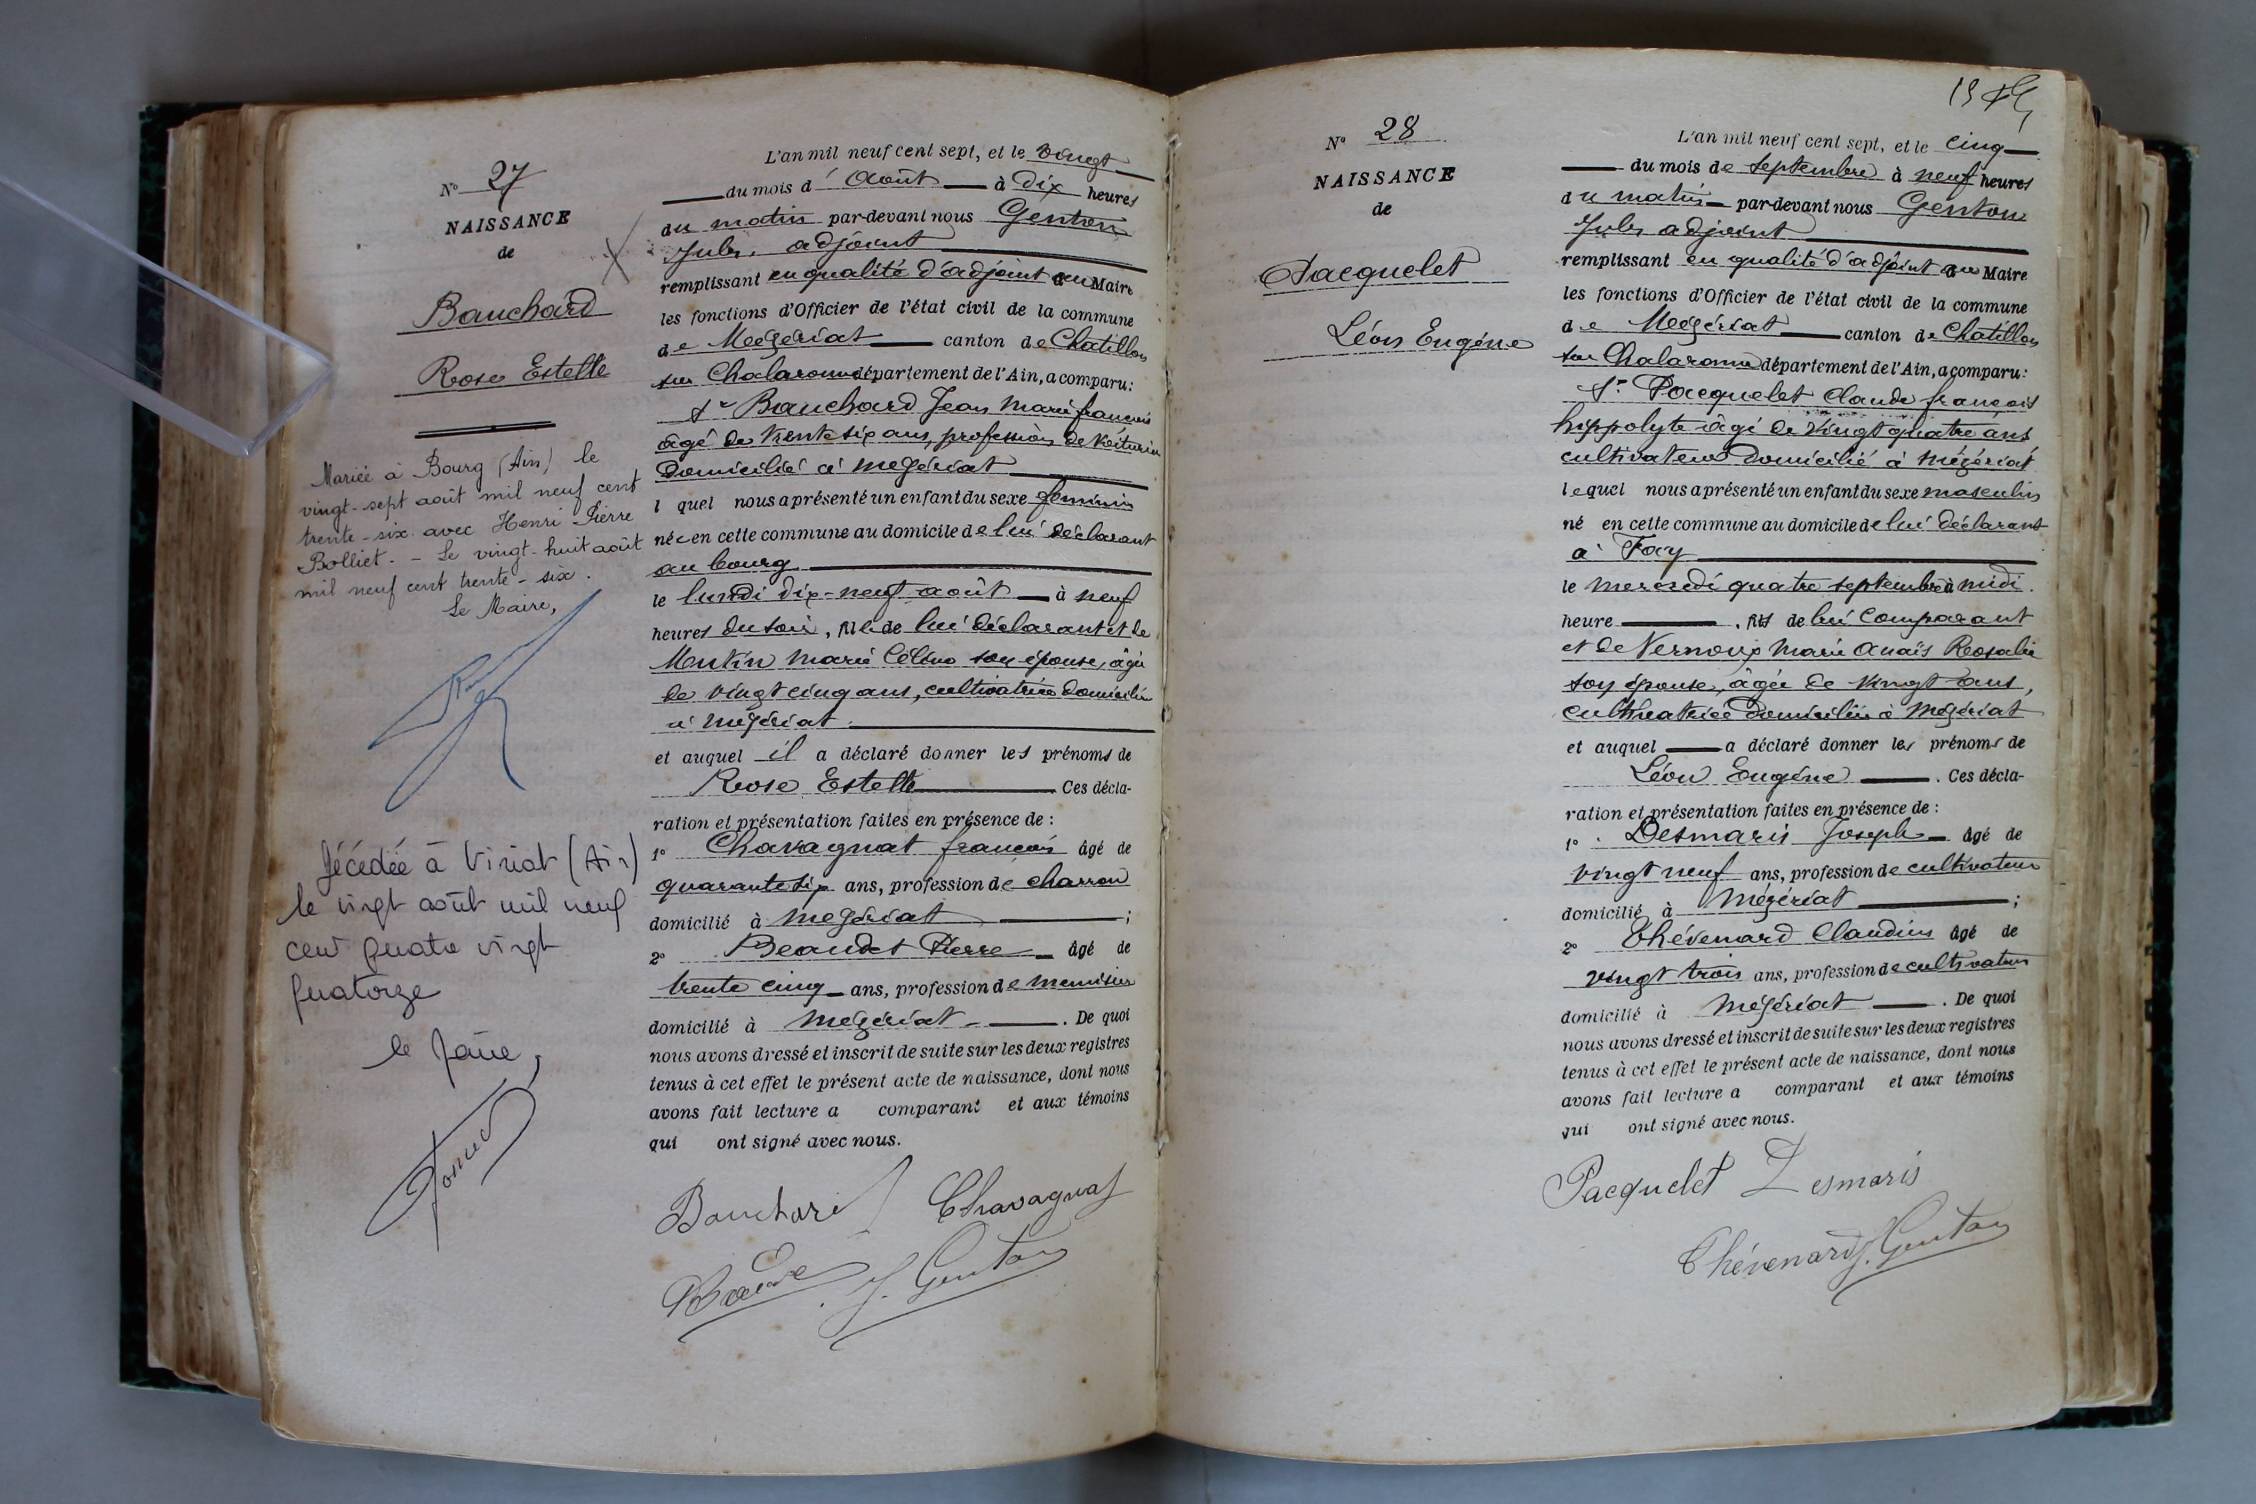 N° 27
NAISSANCE
de
Bauchard
Rose Estelle
Mariée à Bourg (Ain) le
vingt-sept août mil neuf cent
trente-six avec Henri Pierre
Bolliet. - Le vingt-huit août
mil neuf cent trente-six.
Le Maire,
Décédée à Viriat (Ain)
le vingt août mil neuf
cent quatre vingt
quatorze
le Maire,
L'an mil neuf cent sept, et le vingt
du mois d'Août à dix heures
du matin par-devant nous Genton
Jules, adjoint
remplissant en qualité d'adjoint au Maire
les fonctions d'Officier de l'état civil de la commune
de Mézériat canton de Chatillon
sur Chalaronne département de l'Ain, a comparu:
Sr Bauchard Jean Marie françois
âgé de trente six ans, profession de voiturier
domicilié à Mézériat
l quel nous a présenté un enfant du sexe féminin
née en cette commune au domicile de lui déclarant
au bourg
le lundi dix-neuf août à neuf
heures du soir, fille de lui déclarant et de
Mentin Marie son épouse, âgée
de vingt cinq ans, cultivatrice domiciliée
à Mézériat
et auquel il a déclaré donner les prénoms de
Rose Estelle Ces décla-
ration et présentation faites en présence de :
1° Chavagnat françois âgé de
quarante six ans, profession de charron
domicilié à Mézériat ;
2° Beaudet Pierre âgé de
trente cinq ans, profession de menuisier
domicilié à Mézériat . De quoi
nous avons dressé et inscrit de suite sur les deux registres
tenus à cet effet le présent acte de naissance, dont nous
avons fait lecture a comparant et aux témoins
qui ont signé avec nous.
Bauchard Chavagnat
J. Genton
N° 28
NAISSANCE
de
Pacquelet
Léon Eugéne
L'an mil neuf cent sept, et le cinq
du mois de septembre à neuf heures
du matin par-devant nous Genton
Jules adjoint
remplissant en qualité d'adjoint au Maire
les fonctions d'Officier de l'état civil de la commune
de Mézériat canton de Chatillon
sur Chalaronne département de l'Ain, a comparu:
Sr Pacquelet Claude françois
hippolyte âgé de vingt quatre ans
cultivateur domicilié à Mézériat
lequel nous a présenté un enfant du sexe masculin
né en cette commune au domicile de lui déclarant
à Fay
le mercredi quatre septembre à midi.
heure , fils de lui Comparant
et de Vernoux Marie Anaïs Rosalie
son épouse, âgée de vingt ans,
cultivatrice domiciliée à Mézériat
et auquel a déclaré donner les prénoms de
Léon Eugéne . Ces décla-
ration et présentation faites en présence de :
1° Desmaris Joseph âgé de
vingt neuf ans, profession de cultivateur
domicilié à Mézériat ;
2° Thévenard Claudius âgé de
vingt trois ans, profession de cultivateur
domicilié à Mézériat . De quoi
nous avons dressé et inscrit de suite sur les deux registres
tenus à cet effet le présent acte de naissance, dont nous
avons fait lecture a comparant et aux témoins
qui ont signé avec nous.
Pacquelet Desmaris
Thévenard J. Genton